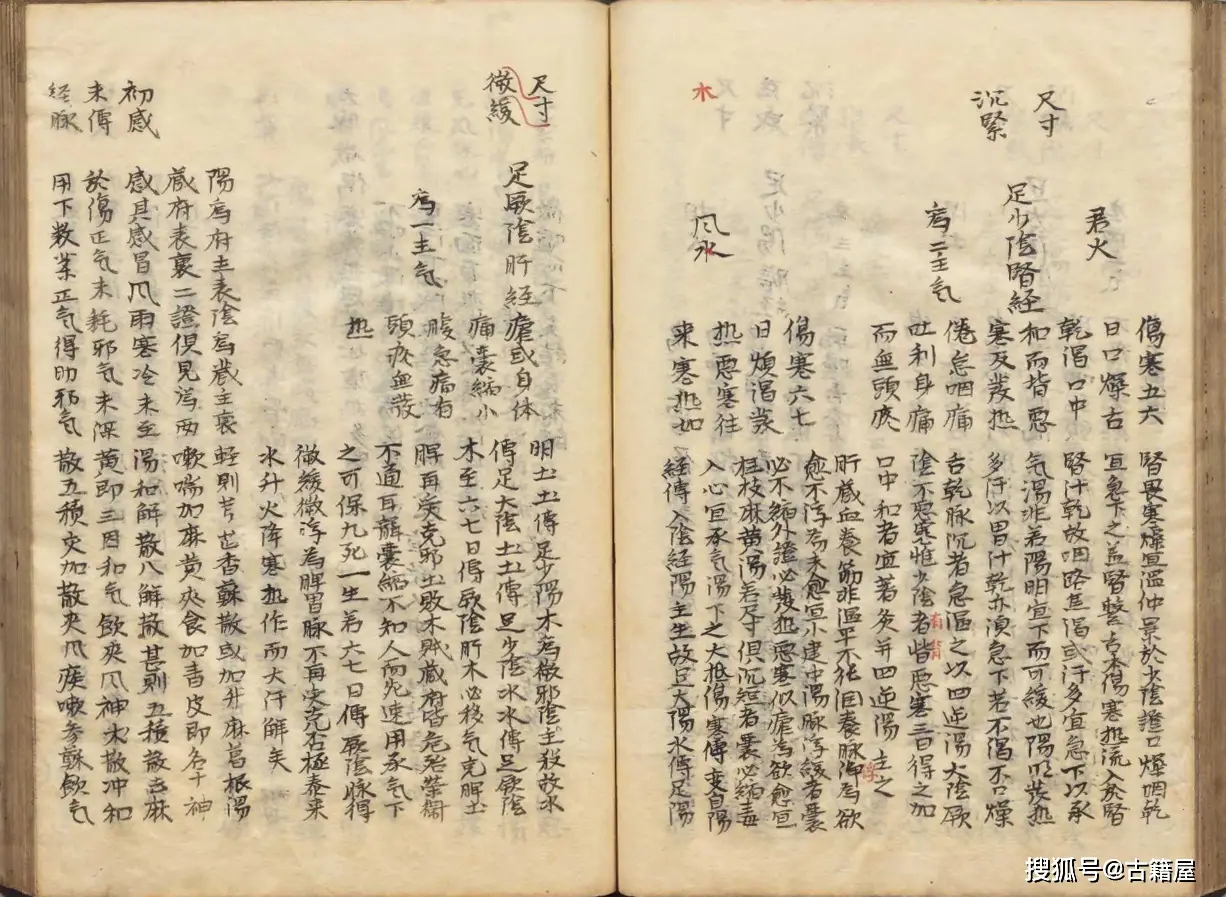 尺寸
沉緊
君火
足少陰腎經
為二主气
傷寒五六
日口燥舌
乾渴口中
和而背惡
寒反發熱
倦怠咽痛
吐利身痛
而無頭疼
腎畏寒燥宜溫仲景於少陰證口燥咽乾
宜急下之盖腎繫舌本傷寒熱流入於腎
腎汁乾故咽路焦渴或汗多宜急下以承
气湯非若陽明宜下而可緩也陽明發熱
多汗以胃汁乾亦須急下若不渴不口燥
舌乾脉沉者急溫之以四逆湯大陰厥
陰不惡寒惟少陰者背惡寒三日得之加
口中和者宜著灸并四逆湯主之
木
風木
傷寒六七
日煩渴發
熱惡寒往
来寒熱如
肝藏血養筋非溫平不能囬養脉浮為欲
愈不浮為未愈宜小建中湯脉浮緩者囊
必不縮外證必發熱惡寒似瘧為欲愈宜
桂枝麻黄湯若尺寸俱沉短者囊必縮毒
入心宜承气湯下之大抵傷寒傳变自陽
經傳入陰經陽主生故足太陽水傳足陽
尺寸
微緩
足厥陰肝經
為一主气
瘧或自体
痛囊縮小
腹急痛有
頭疼無發
熱
明土土傳足少陽木為微邪陰主殺故水
傳足大陰土土傳足少陰水水傳足厥陰
木至六七日得厥陰肝木必移气克脾土
脾再受克邪土敗木賊藏府皆危殆榮衛
不通耳聾囊縮不知人而死速用承气下
之可保九死一生若六七日傳厥陰脉得
微緩微浮為脾胃脉不再受克否極泰来
水升火降寒熱作而大汗解矣
初感
未傳
経脉
陽為府主表陰為藏主裏輕則芎芷香蘇散或加升麻葛根湯
藏府表裏二證俱見為两嗽喘加麻黄夾食加青皮即名十神
感其感冒風雨寒冷未至湯和解散八解散甚則五積散去麻
於傷正气未耗邪气未深黄即三因和气飲夾風神朮散冲和
用下数藥正气得助邪气散五積灾加散夾風痰嗽参蘇飲气
搜狐号@古籍屋